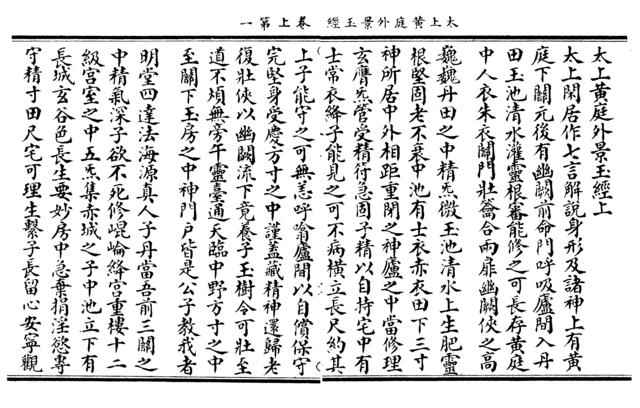 太上黃庭外景玉經　卷上第一
太上黃庭外景玉經上
太上閑居作七言解說身形及諸神上有黃
庭下關元後有幽闕前命門呼吸廬間入丹
田玉池清水灌靈根審能修之可長存黃庭
中人衣朱衣關門壯籥合兩扉幽闕俠之高
巍巍丹田之中精炁微玉池清水上生肥靈
根堅固老不衰中池有士衣赤衣田下三寸
神所居中外相距重閉之神廬之中當修理
玄膺炁管受精符急固子精以自持宅中有
士常衣絳子能見之可不病橫立長尺約其
上子能守之可無恙呼噏廬間以自償保守
完堅身受慶方寸之中謹蓋藏精神還歸老
復壯俠以幽闕流下竟養子玉樹令可壯至
道不煩無旁午靈臺通天臨中野方寸之中
至關下玉房之中神門戶皆是公子教我者
明堂四達法海源真人子丹當吾前三關之
中精氣深子欲不死修崐崘絳宮重樓十二
級宮室之中五炁集赤城之子中池立下有
長城玄谷邑長生要妙房中急棄捐淫慾專
守精寸田尺宅可理生繫子長留心安寧觀